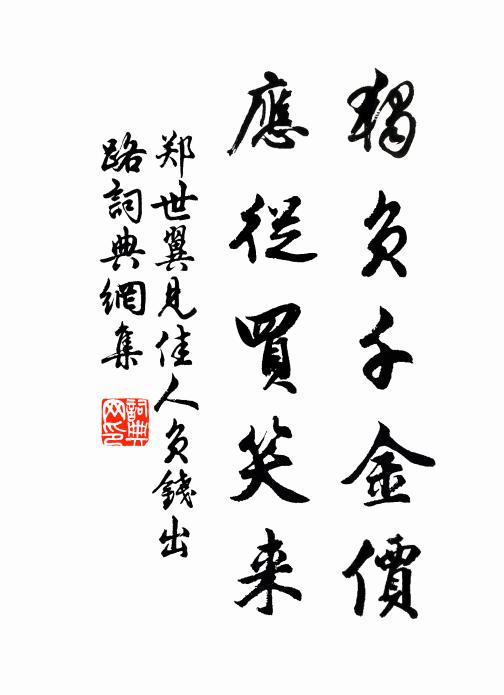 獨負千金價
應從買笑来
郑世翼見佳人負錢出
路詞典網集
詞典
网印